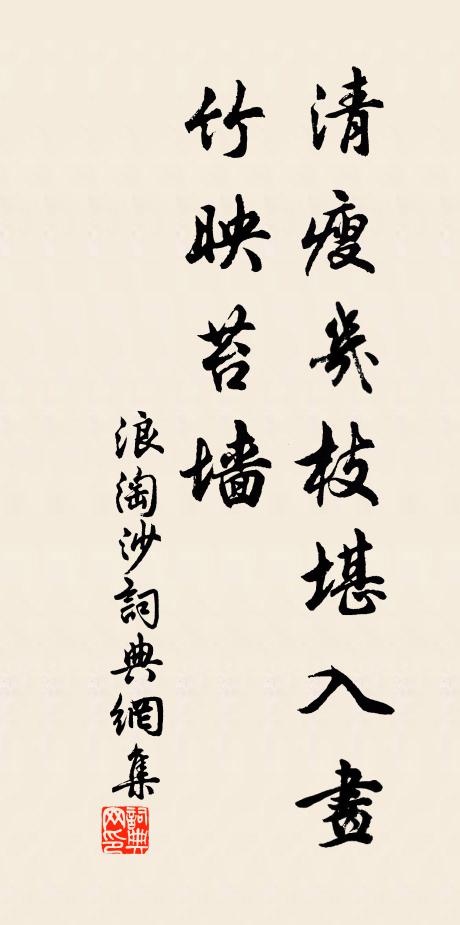 清瘦幾枝堪入畫
竹映苔墻
浪淘沙詞典網集
詞典
网印